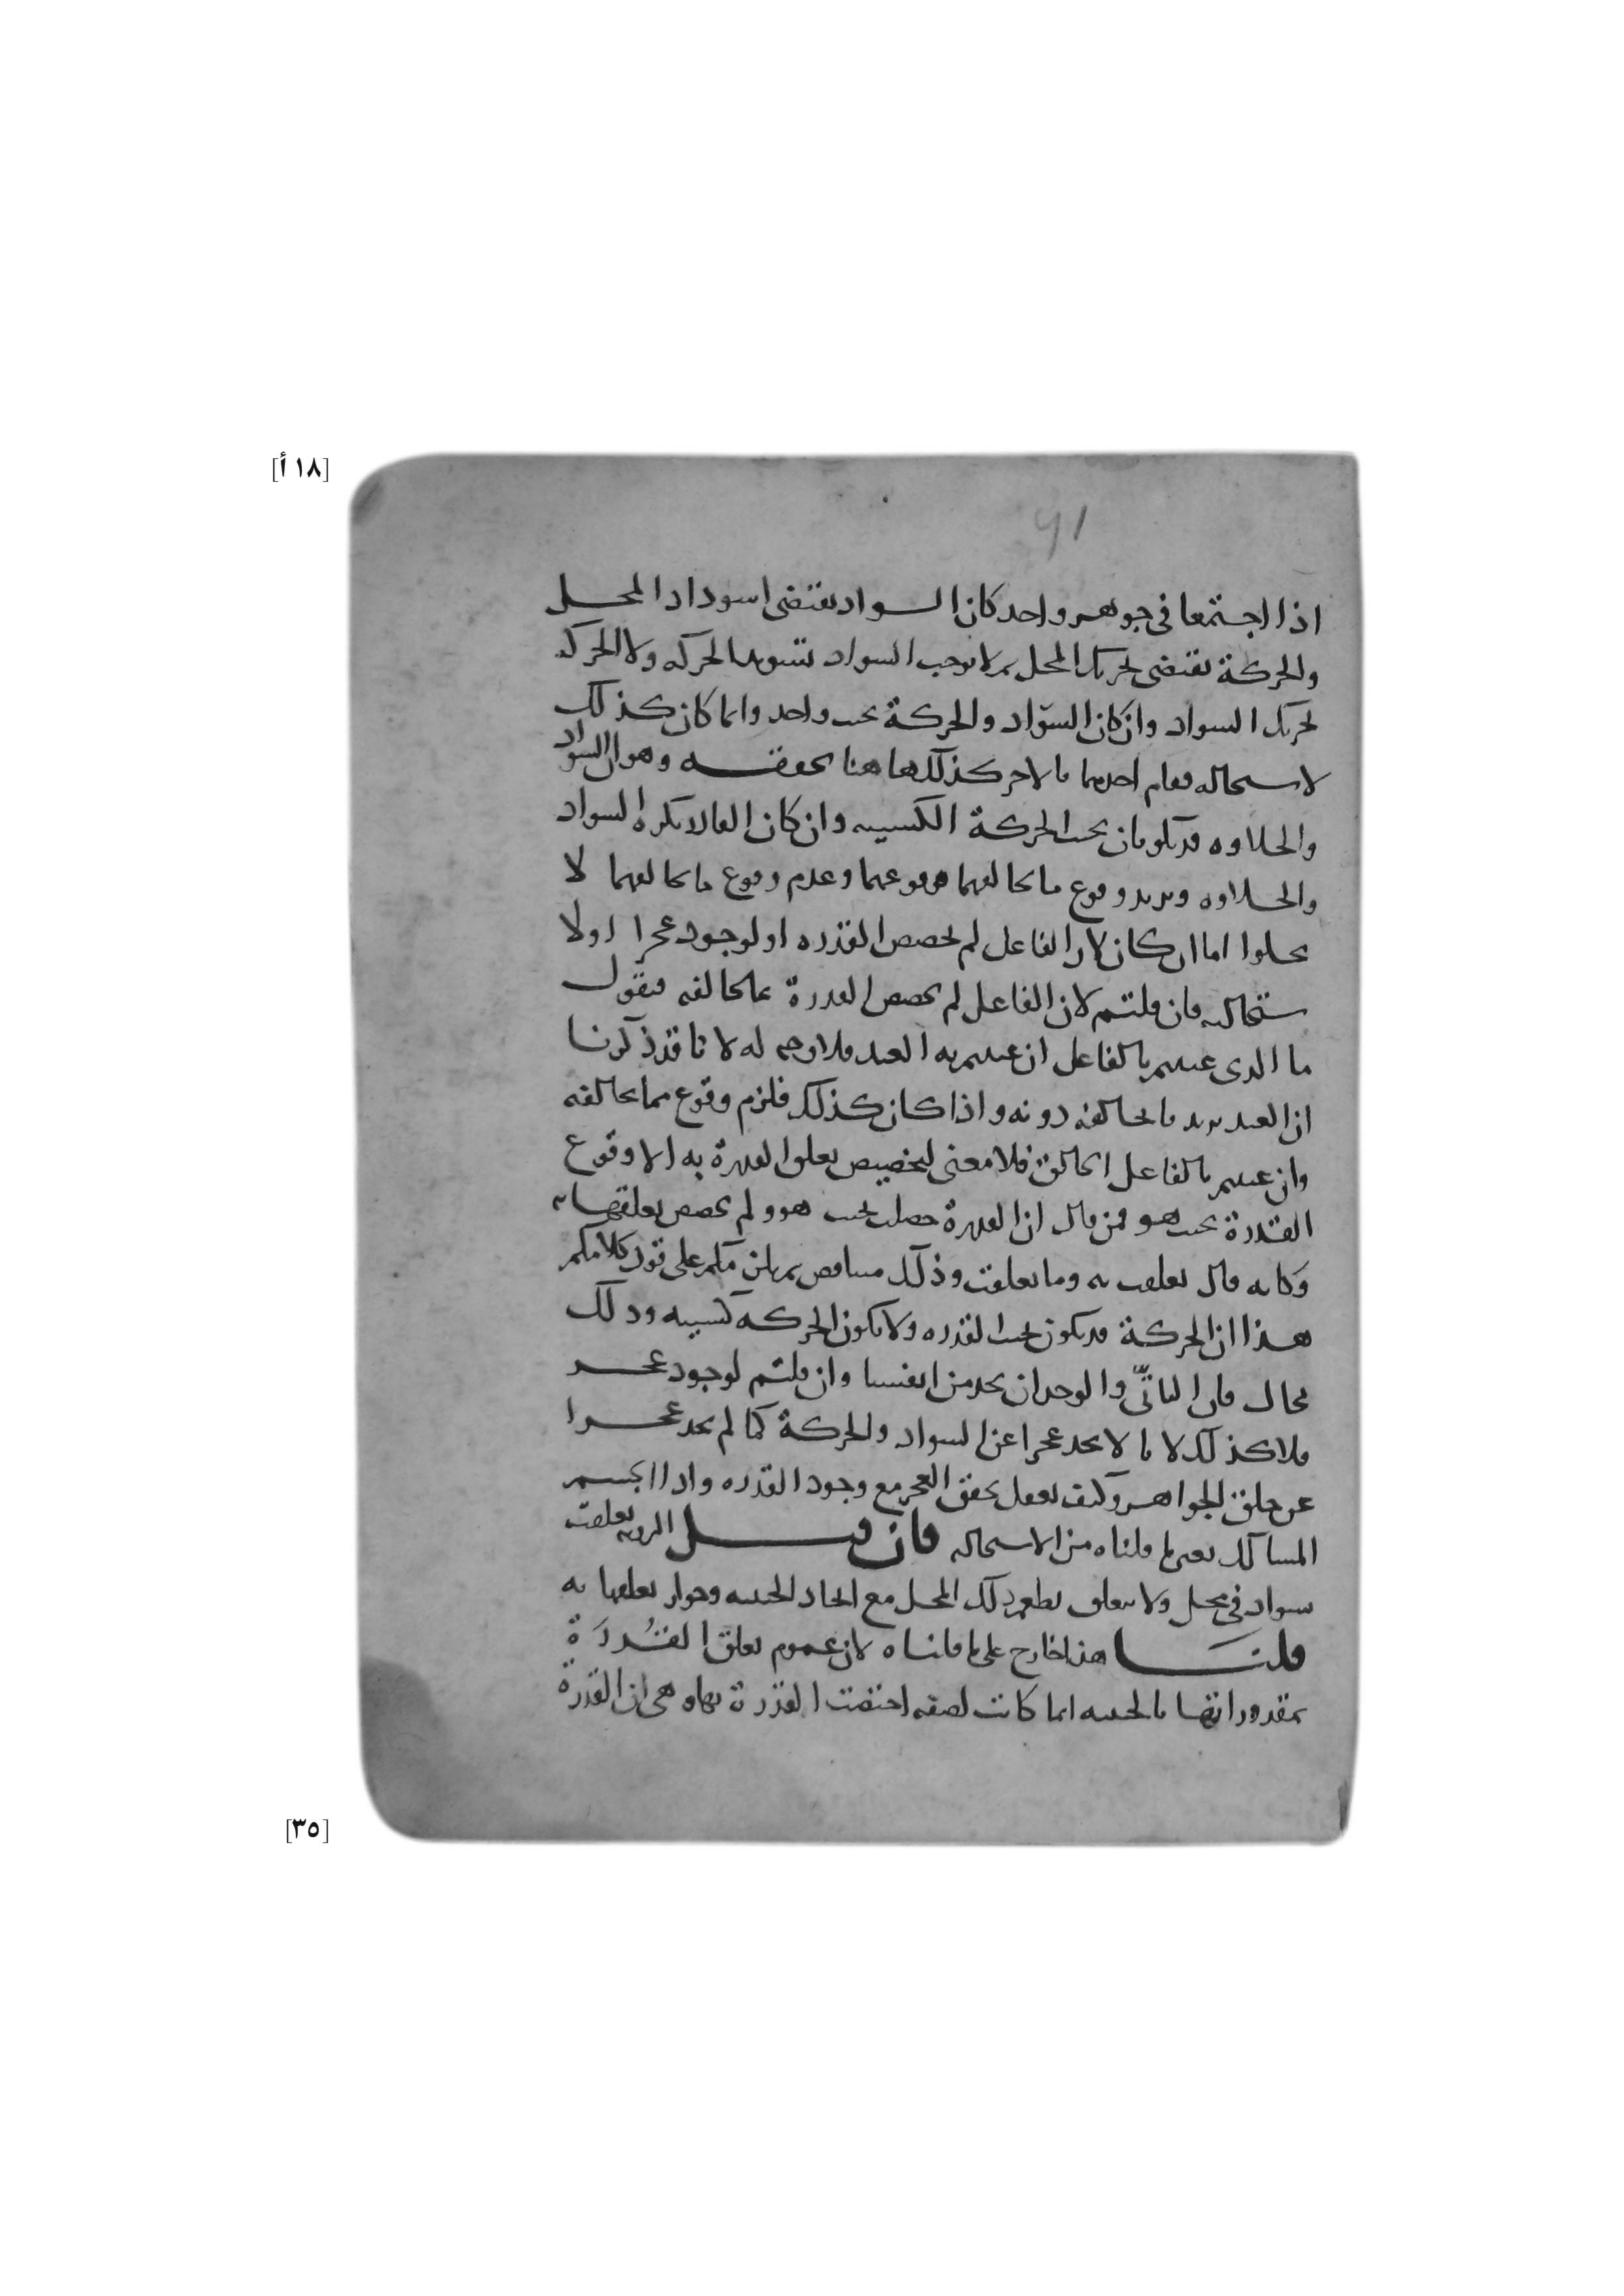 [١٨ أ]
٩١
اذا اجتمعا في جوهر واحد كان السواد يقتضي اسوداد المحل
والحركة تقتضي تحريك المحل ثم لا يوجب السواد تسويد الحركه ولا الحركه
تحريك السواد وان كان السوّاد والحركة بحيث واحد وانما كان كذلك
لاستحاله قيام احدهما بالاخر كذلك هاهنا وهو ان السواد
والحلاوه قد يكونان بحيث الحركة الكسبيه وان كان يكره السواد
والحلاوه ويريد وقوع ما يخالفهما وعدم وقوع ما يخالفهما لا
يخلوا اما ان كان لان الفاعل لم يخصص القدره او لوجود عجز او لا
ستحاله فان قلتم لان الفاعل لم يخصص القدرة بما يخالفه فيقول
ما الذي عنيتم بالفاعل ان عنيتم به العبد فلا وجه له لانا قد ذكرنا
ان العبد يريد ما يخالفه دونه واذا كان كذلك فلزم وقوع مما يخالفه
وان عنيتم بالفاعل الخالق فلا معنى لتخصيص تعلق القدرة به الا وقوع
القدرة بحيث هو فمن قال ان القدرة حصلت بحيث هو ولم يخصص تعلقها به
وكانه قال تعلقت به وما تعلقت وذلك متناقض ثم يلزمكم على قود كلامكم
هذا ان الحركة قد يكون بحيث القدره ولا يكون الحركه كسبيه وذلك
محال فان التاتّي والوجدان يجد من انفسنا وان قلتم لوجود عجز
فلا كذلك لانا لا نجد عجزا عن السواد والحركة كما لم نجد عجزا
عن خلق الجواهر وكيف يعقل تحقق العجز مع وجود القدره واذا
المسالك تعين ما قلناه من الاستحاله فان قيل الرويه تعلقت
سواد في محل ولا يتعلق بطعم ذلك المحل مع اتحاد الحيثيه وجواز تعلقها به
قلنا هذا خارج على ما قلناه لان عموم تعلق القُدرَة
بمقدوراتها بالحيثيه انما كانت لصفه اختصت القدرة بها وهي ان القدرة
[٣٥]